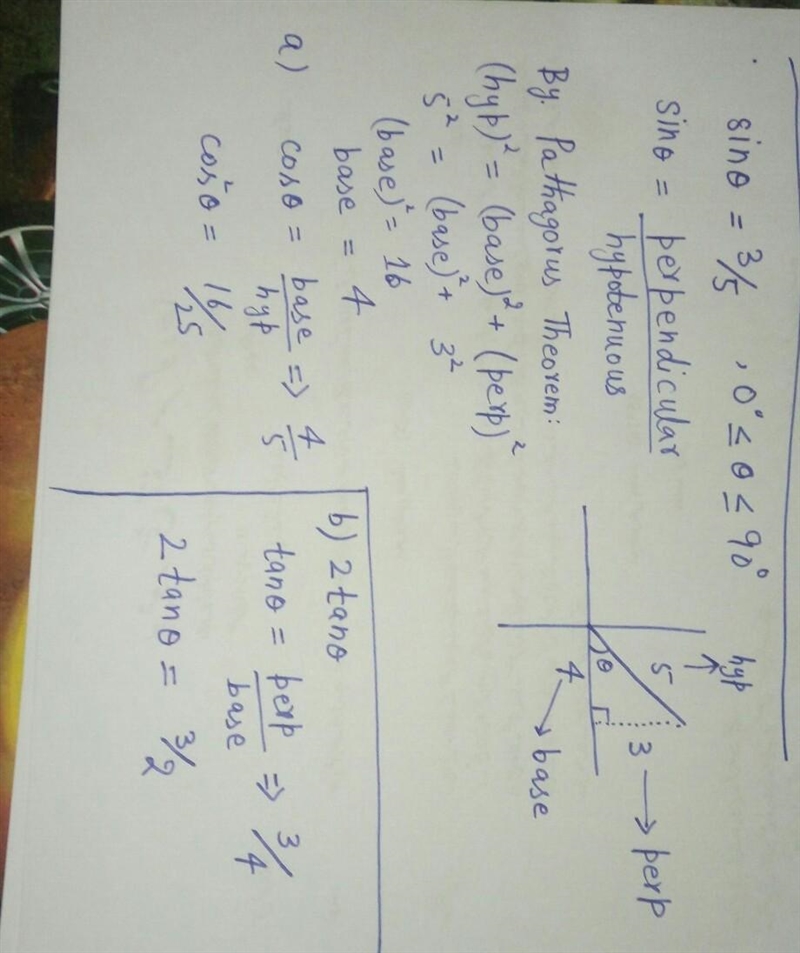 sinθ = 3/5 , 0° ≤ θ ≤ 90°
sinθ = perpendicular
hypotenuous
hyp
↑
5
3 → perp
θ
4 → base
By. Pathagorus Theorem:
(hyp)² = (base)² + (perp)²
5² = (base)² + 3²
(base)² = 16
base = 4
a) cosθ = base/hyp => 4/5
cos²θ = 16/25
b) 2tanθ
tanθ = perp/base => 3/4
2tanθ = 3/2